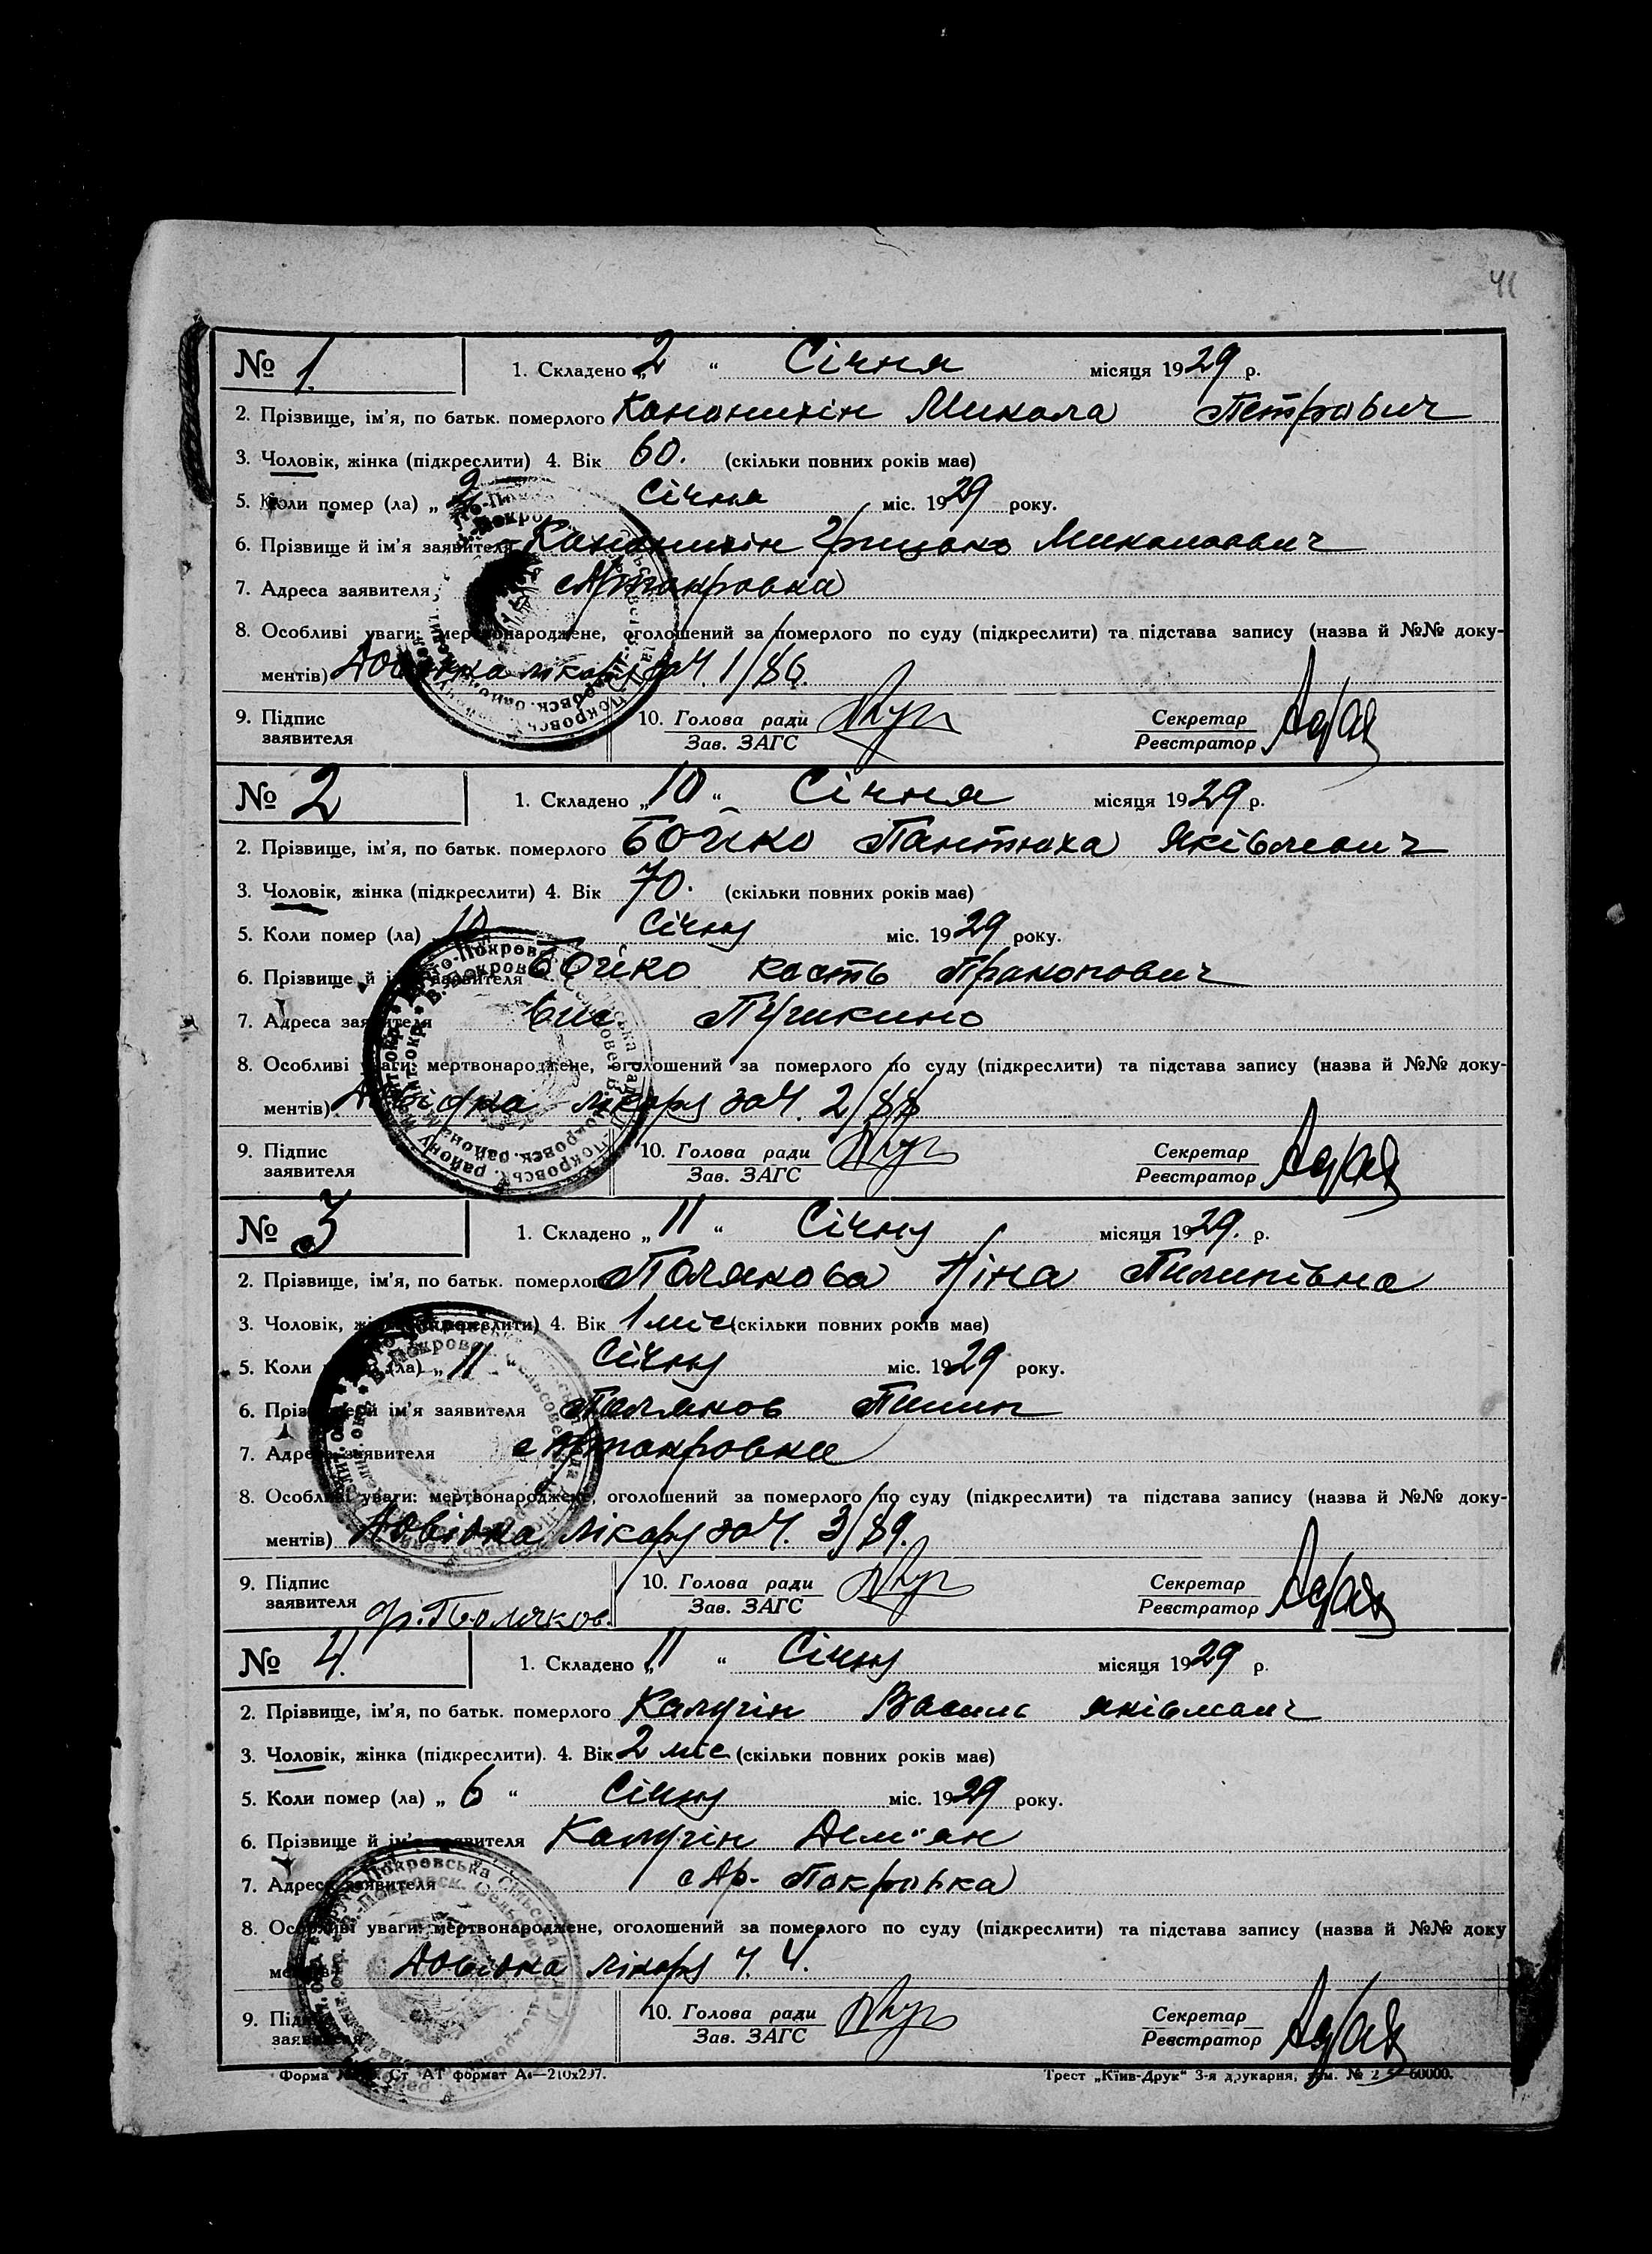 41
№ 1. 1. Складено „2“ Січня місяця 1929 р.
2. Прізвище, ім'я, по батьк. померлого Кононихін Микола Петрович
3. Чоловік, жінка (підкреслити) 4. Вік 60. (скільки повних років має)
5. Коли помер (ла) „2 Січня міс. 1929 року.
6. Прізвище й ім'я заявителя Кононихін Грицько Миколаович
7. Адреса заявителя
8. Особливі уваги: мертвонароджене, оголошений за померлого по суду (підкреслити) та підстава запису (назва й №№ доку-
ментів) Довідка лікаря за Ч. 1/86.
9. Підпис заявителя 10. Голова ради Зав. ЗАГС Секретар Реєстратор
№ 2 1. Складено „10“ Січня місяця 1929 р.
2. Прізвище, ім'я, по батьк. померлого Бойко Пантюха Яківлевич
3. Чоловік, жінка (підкреслити) 4. Вік 70. (скільки повних років має)
5. Коли помер (ла) 10 Січня міс. 1929 року.
6. Прізвище й ім'я заявителя Бойко Кость Пракопович
7. Адреса заявителя Вис Пушкино
8. Особливі уваги: мертвонароджене, оголошений за померлого по суду (підкреслити) та підстава запису (назва й №№ доку-
ментів) Довідка лікаря за Ч. 2/88
9. Підпис заявителя 10. Голова ради Зав. ЗАГС Секретар Реєстратор
№ 3 1. Складено „11“ Січня місяця 1929. р.
2. Прізвище, ім'я, по батьк. померлого Полякова Ніна Пилипівна
3. Чоловік, жінка (підкреслити) 4. Вік 1 міс (скільки повних років має)
5. Коли помер (ла) „11“ Січня міс. 1929 року.
6. Прізвище й ім'я заявителя Поляков Пилип
7. Адреса заявителя
8. Особливі уваги: мертвонароджене, оголошений за померлого по суду (підкреслити) та підстава запису (назва й №№ доку-
ментів) Довідка лікаря за Ч. 3/89.
9. Підпис заявителя Ф. Поляков. 10. Голова ради Зав. ЗАГС Секретар Реєстратор
№ 4. 1. Складено „11“ Січня місяця 1929 р.
2. Прізвище, ім'я, по батьк. померлого Калугін Василь Яківлевич
3. Чоловік, жінка (підкреслити). 4. Вік 2 міс (скільки повних років має)
5. Коли помер (ла) „6“ Січня міс. 1929 року.
6. Прізвище й ім'я заявителя Калугін Дем'ян
7. Адреса заявителя с Ар. Покровка
8. Особливі уваги: мертвонароджене, оголошений за померлого по суду (підкреслити) та підстава запису (назва й №№ доку
ментів) Довідка лікаря Ч. 4.
9. Підпис заявителя 10. Голова ради Зав. ЗАГС Секретар Реєстратор
Форма Ст АТ формат А4—210x297. Трест „Київ-Друк“ 3-я друкарня, 60000.